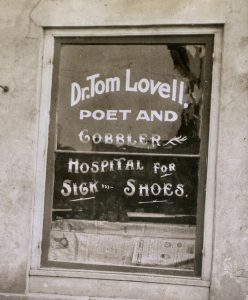 Dr. Tom Lovell.
POET AND
COBBLER
HOSPITAL FOR
SICK SHOES.